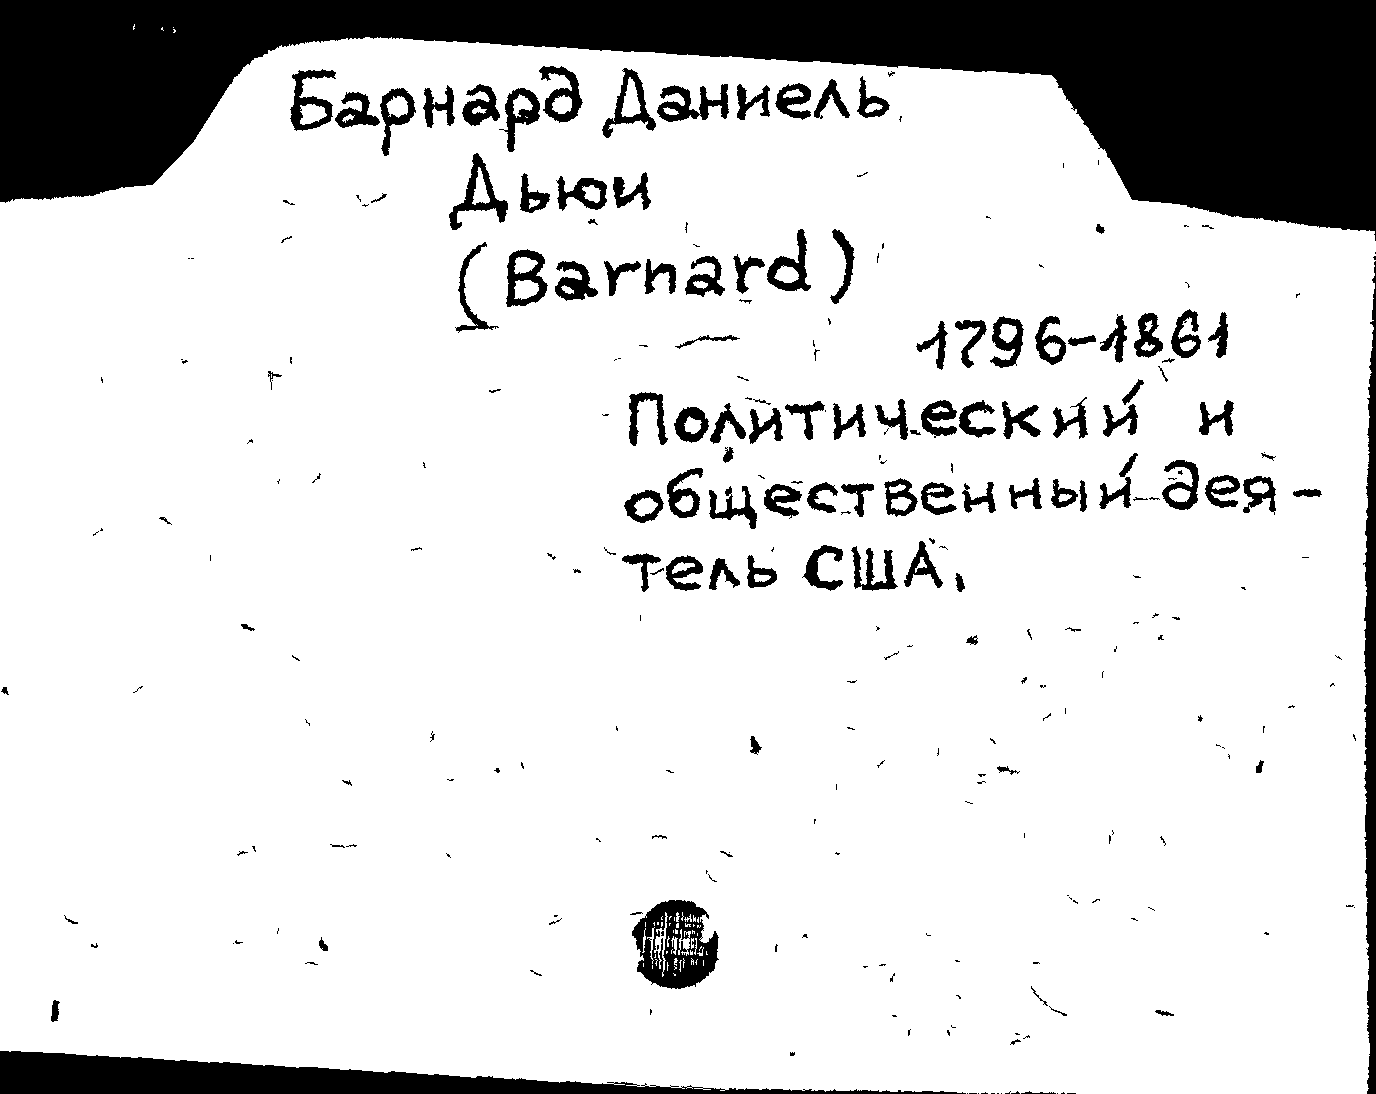 Барнард Даниель
Дьюи
(Barnard)
1796-1861
Политический и
общественный дея-
тель США.